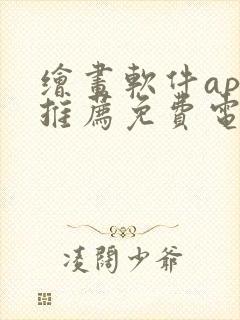 繪畫軟件ap
推薦免費電
凌闊少爺